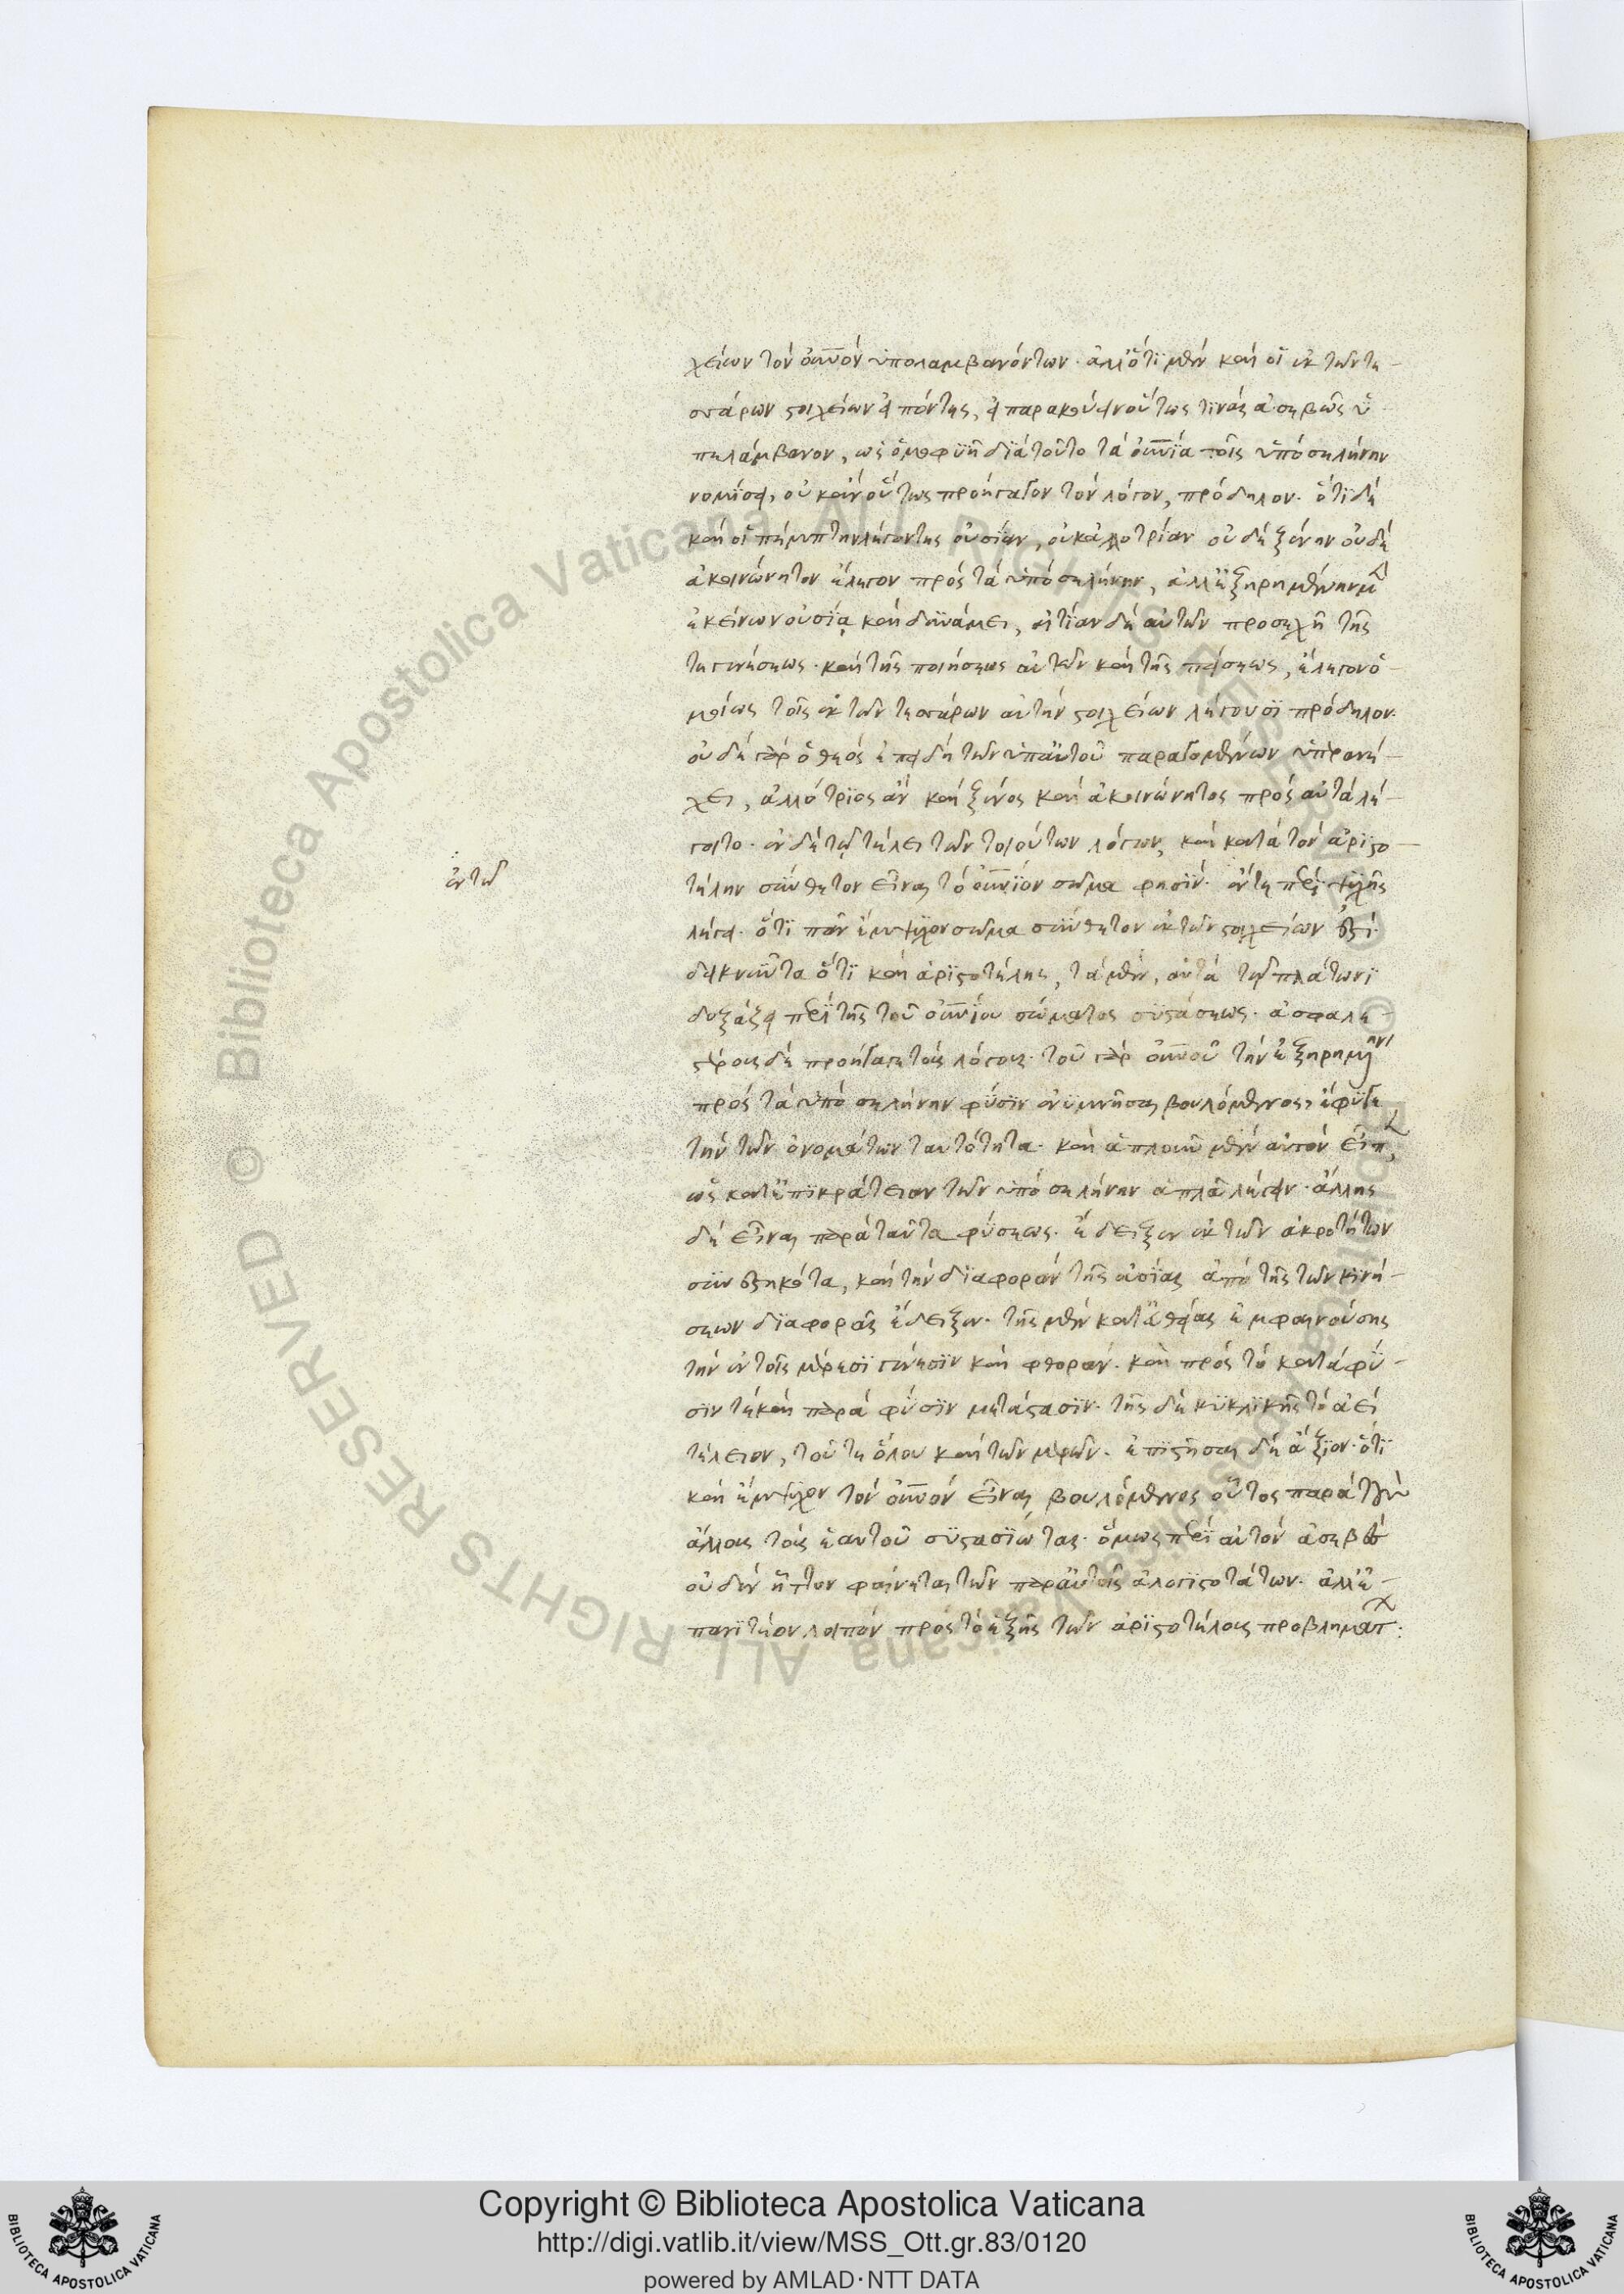 χείων τὸν οὐνον ὑπολαμβανόντων. ἀλλ' ὅτι μὲν καὶ οἱ ἐκ τῶν τε-
σσάρων στοιχείων εἰπόντες, εἰ παρακούειν οὕτως τινὰς ἀσεβῶς ὑ-
πελάμβανον, ὡς ὁμοφυῆ διὰ τοῦτο τὰ οὐνια τοῖς ὑπὸ σελήνην
νομίσαι, οὐκ ἂν οὕτως προήγαγον τὸν λόγον, πρόδηλον. ὅτι δὲ
καὶ οἱ πέμπτην λέγοντες οὐσίαν, οὐκ ἀλλοτρίαν οὐδὲ ξένην οὐδὲ
ἀκοινώνητον ἔλεγον πρὸς τὰ ὑπὸ σελήνην, ἀλλ' ἐξηρημένην μὲν
ἐκείνων οὐσίᾳ καὶ δυνάμει, αἰτίαν δὲ αὐτῶν προσεχῆ τῆς
τε γενέσεως. καὶ τῆς ποιήσεως αὐτῶν καὶ τῆς πείσεως, ἔλεγον ὁ-
μοίως τοῖς ἐκ τῶν τεσσάρων αὐτὴν στοιχείων λέγουσι πρόδηλον.
οὐδὲ γὰρ ὁ θεὸς ἐπειδὴ τῶν ὑπ' αὐτοῦ παραγομένων ὑπερανέ-
χει, ἀλλότριος ἂν καὶ ξένος καὶ ἀκοινώνητος πρὸς αὐτὰ λέ-
γοιτο. ἐν δὲ τῷ τέλει τῶν τοιούτων λόγων, καὶ κατὰ τὸν ἀριστο-
ἐν τῶ
τέλην σύνθετον εἶναι τὸ οὐνιον σῶμα φησίν. ἐν τε περὶ ψυχῆς
λέγει. ὅτι πᾶν ἔμψυχον σῶμα σύνθετον ἐκ τῶν στοιχείων ἐστί.
δεικνῦντα ὅτι καὶ ἀριστοτέλης, τὰ μὲν, αὐτὰ τῷ πλάτωνι
δοξάζει περὶ τῆς τοῦ οὐνιου σώματος συστάσεως. ἀσφαλε-
στέροις δὲ προήγαγε τοῖς λόγοις. τοῦ γὰρ οὐνου τὴν ἐξηρημένην
πρὸς τὰ ὑπὸ σελήνην φύσιν ἀνυμνῆσαι βουλόμενος, ἔφυγε
τὴν τῶν ὀνομάτων ταυτότητα. καὶ ἁπλοῦν μὲν αὐτὸν εἶπε,
ὡς κατ' ἐπικράτειαν τῶν ὑπὸ σελήνην ἁπλᾶ λέγειν. ἄλλης
δὲ εἶναι παρὰ ταῦτα φύσεως. ἔδειξεν ἐκ τῶν ἀκροτήτων
συνεστηκότα, καὶ τὴν διαφορὰν τῆς οὐσίας ἀπὸ τῆς τῶν κινή-
σεων διαφορᾶς ἔδειξεν. τῆς μὲν κατ' εὐθείας ἐμφαινούσης
τὴν ἐν τοῖς μέρεσι γένεσιν καὶ φθοράν. καὶ πρὸς τὸ κατὰ φύ-
σιν τὲ καὶ παρὰ φύσιν μετάστασιν. τῆς δὲ κυκλικῆς τὸ ἀεὶ
τέλειον, τοῦ τε ὅλου καὶ τῶν μερῶν. ἐπιστῆσαι δὲ ἄξιον. ὅτι
καὶ ἔμψυχον τὸν οὐνον εἶναι βουλόμενος οὗτος παρὰ τὴν
ἄλλοις τοῖς ἑαυτοῦ συστασιώταις. ὅμως περὶ αὐτὸν ἀσεβῶν
οὐδὲν ἧττον φαίνεται τῶν παρ' αὐτοῖς ἀλογιστοτάτων. ἀλλ' ἐ-
πανιτέον λοιπὸν πρὸς τὸ ἑξῆς τῶν ἀριστοτέλους προβλημάτων:
Copyright © Biblioteca Apostolica Vaticana
http://digi.vatlib.it/view/MSS_Ott.gr.83/0120
powered by AMLAD·NTT DATA